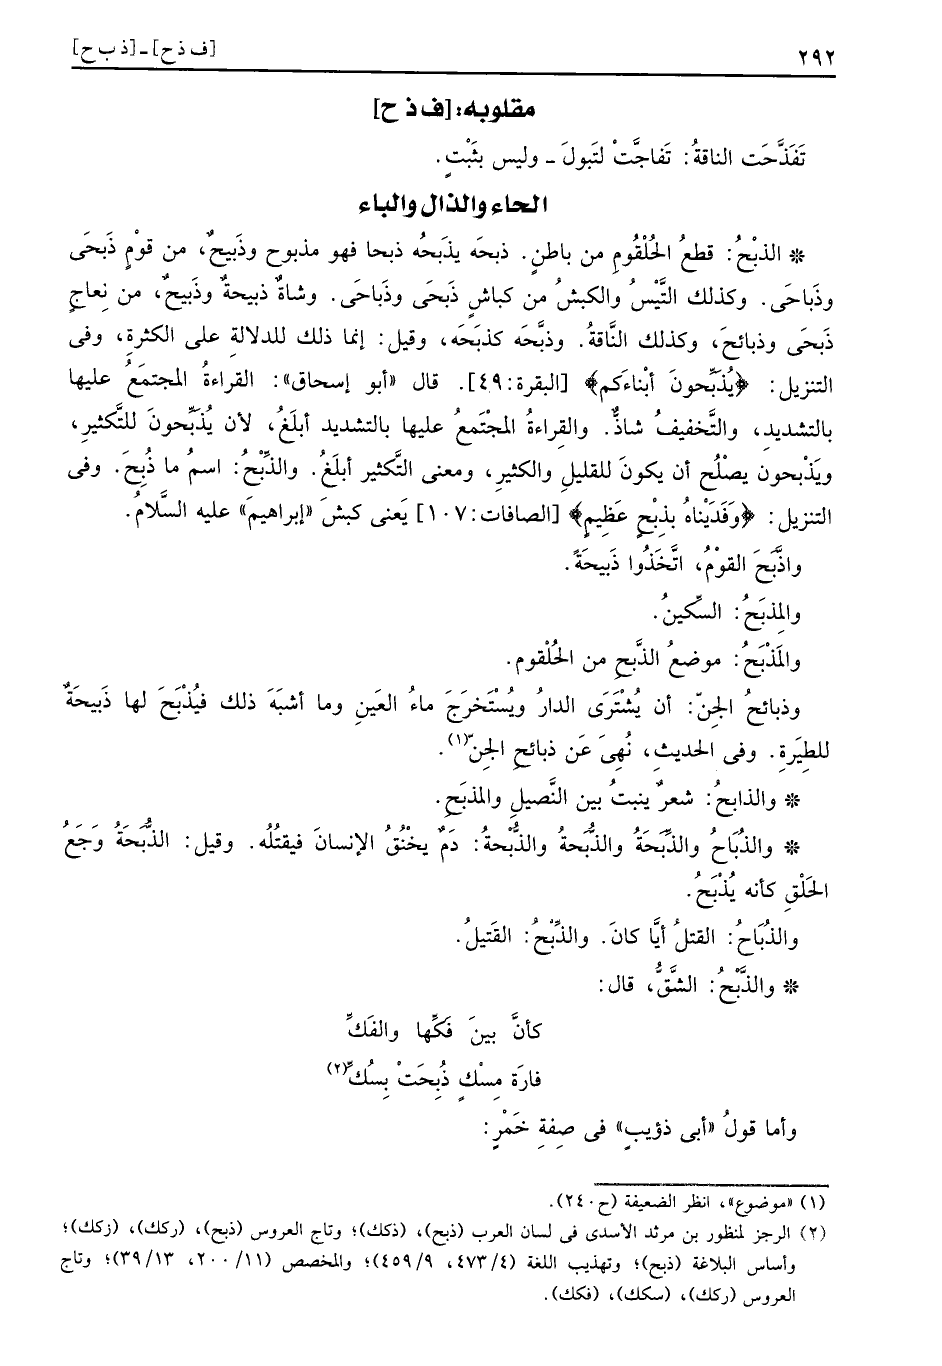 ٢٩٢ [ف ذ ح] ـ [ذ ب ح]
مقلوبه: [ف ذ ح]
تَفَذَّحَت الناقةُ: تَفاجَّتْ لتَبولَ ـ وليس بثَبْتٍ.
الحاء والذال والباء
* الذبْحُ: قطعُ الحُلْقُومِ من باطنٍ. ذبحَه يذبَحُه ذبحا فهو مذبوح وذَبيحٌ، من قومٍ ذَبحَى
وذَباحَى. وكذلك التَّيْسُ والكبشُ من كباشٍ ذَبحَى وذَباحَى. وشاةٌ ذبيحةٌ وذَبيحٌ، من نِعاجٍ
ذَبحَى وذبائحَ، وكذلك النَّاقةُ. وذبَّحَه كذبَحَه، وقيل: إنما ذلك للدلالةِ على الكثرةِ، وفى
التنزيل: ﴿يُذَبِّحونَ أبْناءَكم﴾ [البقرة: ٤٩]. قال «أبو إسحاق»: القراءةُ المجتمَعُ عليها
بالتشديد، والتَّخفيفُ شاذٌّ. والقراءةُ المجْتَمعُ عليها بالتشديد أبلَغُ، لأن يُذَبِّحونَ للتَّكثيرِ،
ويَذْبحون يصْلُح أن يكونَ للقليلِ والكثيرِ، ومعنى التَّكثير أبلَغُ. والذِّبْحُ: اسمُ ما ذُبِحَ. وفى
التنزيل: ﴿وفَدَيْناهُ بذِبْحٍ عَظِيمٍ﴾ [الصافات: ١٠٧] يَعنى كبشَ «إبراهيمَ» عليه السَّلامُ.
واذَّبَحَ القوْمُ، اتَّخَذُوا ذَبيحَةً.
والمِذبَحُ: السكِّينُ.
والمَذْبَحُ: موضعُ الذَّبحِ من الحُلْقوم.
وذبائحُ الجنّ: أن يُشْتَرَى الدارُ ويُسْتَخرَجَ ماءُ العَينِ وما أشبَهَ ذلك فيُذْبَحَ لها ذَبيحَةٌ
للطيَرةِ. وفى الحديثِ، نُهِىَ عَن ذبائحِ الجنّ(١).
* والذابحُ: شعرٌ ينبتُ بين النَّصيلِ والمذبَحِ.
* والذُبَاحُ والذِّبَحَةُ والذُّبَحةُ والذُّبْحةُ: دَمٌ يخْنُقُ الإنسانَ فيقتُلُه. وقيل: الذُّبَحَةُ وَجَعُ
الحَلْقِ كأنه يُذْبَحُ.
والذُبَاحُ: القتلُ أيَّا كانَ. والذِّبْحُ: القَتيلُ.
* والذَّبْحُ: الشَّقُّ، قال:
كأنَّ بينَ فَكِّها والفَكِّ
فارَة مِسْكٍ ذُبِحَتْ بِسُكِّ(٢)
وأما قولُ «أبى ذؤيبٍ» فى صِفةِ خَمْرٍ:
(١) «موضوع»، انظر الضعيفة (ح٢٤٠).
(٢) الرجز لمنظور بن مرثد الأسدى فى لسان العرب (ذبح)، (ذكك)؛ وتاج العروس (ذبح)، (ركك)، (زكك)؛
وأساس البلاغة (ذبح)؛ وتهذيب اللغة (٤/ ٤٧٣، ٩/ ٤٥٩)؛ والمخصص (١١/ ٢٠٠، ١٣/ ٣٩)؛ وتاج
العروس (ركك)، (سكك)، (فكك).